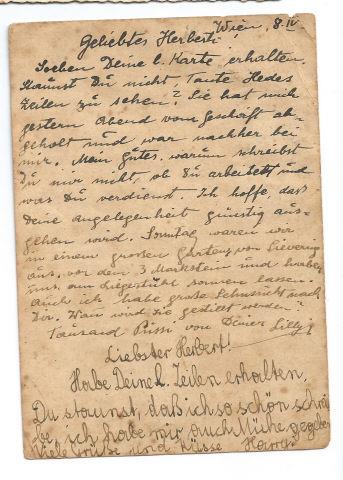 Wien, 8. IV.
Geliebtes Herberti
Soeben Deine l. Karte erhalten,
staunst Du nicht, Tante Hedes
Zeilen zu sehen? Sie hat mich
gestern Abend vom Geschäft ab-
geholt und war nachher bei
mir. Mein gutes, warum schreibst
Du mir nicht, ob Du arbeitest und
was Du verdienst. Ich hoffe, daß
Deine angelegenheit günstig aus-
gehen wird. Sonntag waren wir
in einem grossen Garten von Sievering
aus, vor dem 3 Markstein und haben
uns am Liegestühl sonnen lassen.
Auch ich habe große Sehnsucht nach
Dir. Wan wird sie gestillt werden?
Tausand Pussi von Deiner Lilly
Liebster Herbert!
Habe Deine l. Zeilen erhalten,
Du staunst, daß ich so schön schrei
be, ich habe mir auch Mühe gegeben
Viele Grüße und Küsse Harry